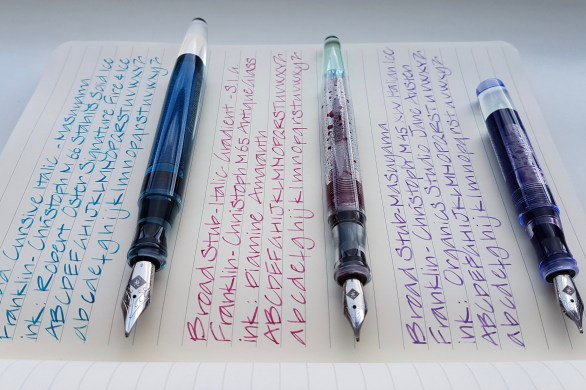 Cursive Italic - Masuyama
Franklin-Christoph M 66 Stabilis Solid Ice
ink: Robert Oster Signature Fire & Ice
ABCDEFGHIJKLMNOPQRSTUVWXYZ
abcdefghijklmnopqrstuvwxyz
Broad Stub-Italic Gradient - S.I.G.
Franklin-Christoph M65 Antique Glass
ink: Diamine Amaranth
ABCDEFGHIJKLMNOPQRSTUVWXYZ
abcdefghijklmnopqrstuvwxyz
Broad Stub-Masuyama
Franklin-Christoph M45 XLV Italian Ice
ink: Organics Studio Jane Austen
ABCDEFGHIJKLMNOPQRSTUVWXYZ
abcdefghijklmnopqrstuvwxyz